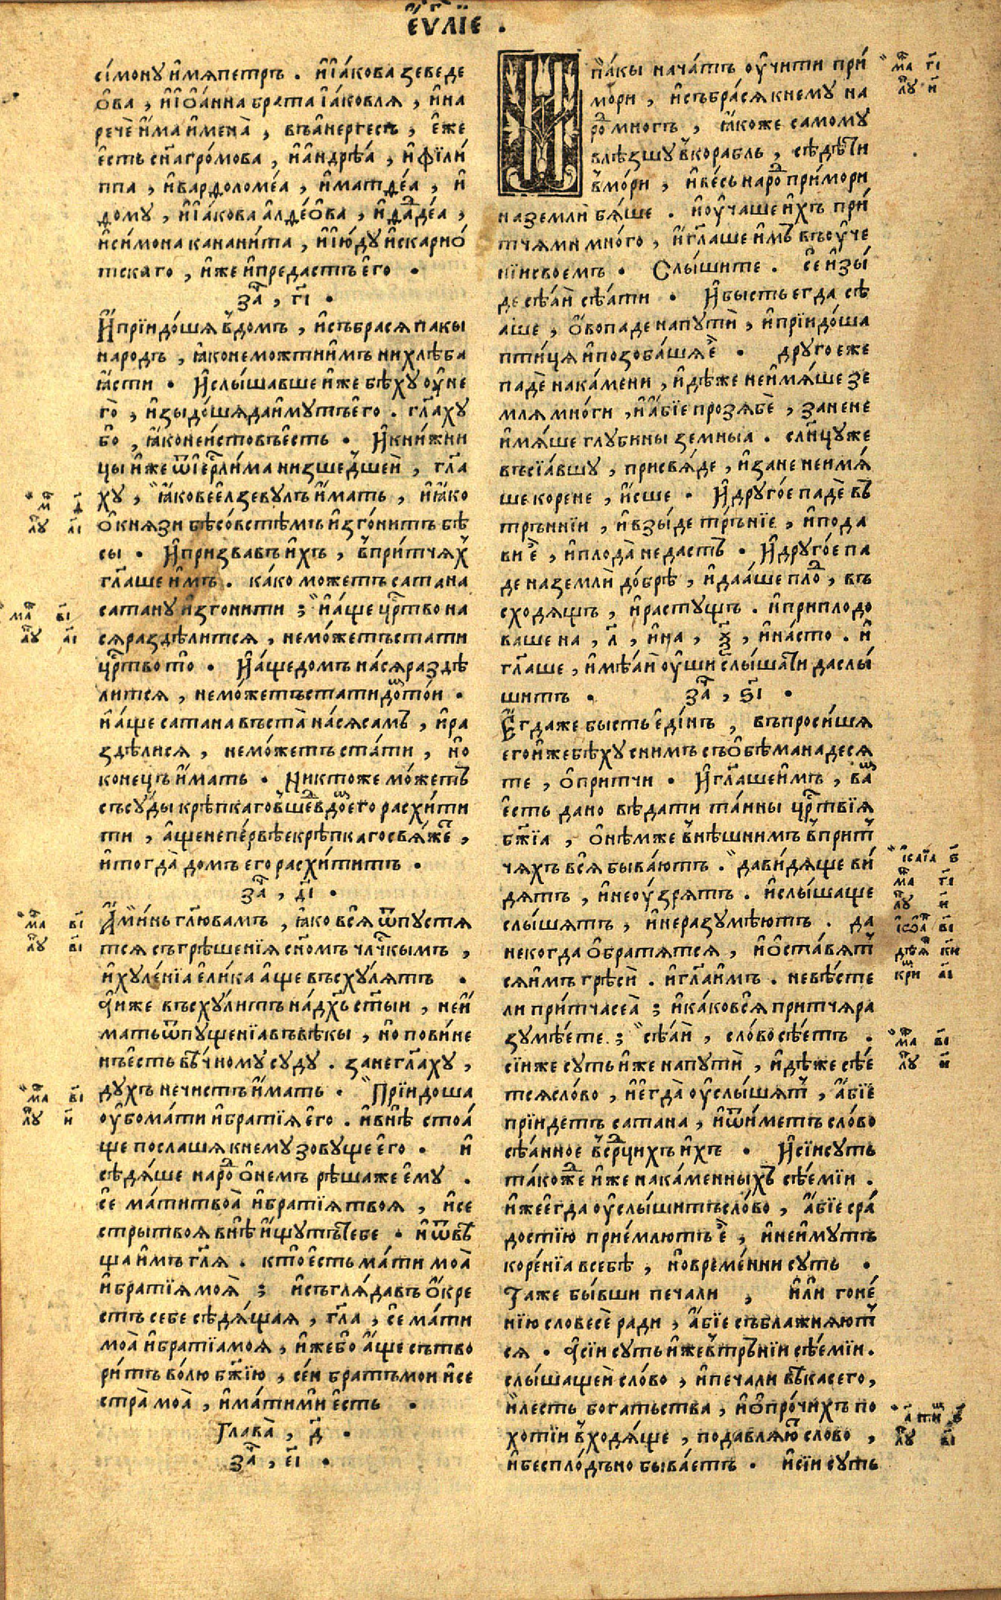 є҆ѵⷢ҇лїе .
сі́мону и҆мѧпетръ . и҆іꙗ҆́кова зеведе
ѻ҆́ва , и҆іѻ҆а́нна брата іꙗ҆́ковлѧ , и҆на
рече̑ и҆́ма и҆мена̀ , въа҆нергесъ , є҆́же
є҆́сть сн҃агро́мова , и҆а҆ндрѣ́а , и҆фїлі́
ппа , и҆вардоломе́а , и҆матде́а , и҆
дому , и҆іꙗ҆́кова алде́ѻва , и҆даⷣде́а ,
и҆си́мона канани́та , и҆ію҆́ду и҆скарїѻ́
тскаго , и҆́же и҆предастъ є҆го .
заⷱ҇ , г҃і .
И҆прїидо́шѧ в̾до́мъ , и҆събрасѧ пакы
народъ , ꙗ҆́конеможтни и҆мъ нихлѣ́ба
ꙗ҆́сти . И҆слы́шавше и҆́же бѣ́ху оу҆не
го̀ , и҆зыдо́шѧ да и҆мутъ є҆го . гл҃аху
бо , ꙗ҆́конеи́стовъ є҆сть . И҆кни́жни
цы и҆́же ѿіер҇лима низше́дшей , гл҃а
ху , ꙗ҆́ковеелзевулъ и҆́мать , и҆ꙗ҆ко
ѻ҆кнѧ́зи бѣсо́вьстѣ́мъ и҆зго́нитъ бѣ
сы . И҆призвавъ и҆́хъ , в̾при́тчѧⷯ
гл҃аше и҆́мъ . ка́ко мо́жетъ сатана
сатану и҆зго́нити ; и҆а҆́ще црⷭ҇тво на
сѧ раздѣ́литсѧ , немо́жетъ стати
црⷭ҇тво то . И҆а҆ще до́мъ на́сѧ раздѣ
ли́тсѧ , немо́жетъ стати до́мъ той .
и҆а҆́ще сатана въста̀ на́сѧ самъ , и҆ра
здѣли́сѧ , немо́жетъ ста́ти , но
конецъ и҆́мать . Никтоже мо́жетъ
съсу́ды крѣ́пкаго в̾ше́дв̾до́мъ его расхи́ти
ти , а҆щенепе́рвѣе крѣ́пкаго свѧ́жеⷮ ,
и҆тогда̀ до́мъ его расхи́титъ .
заⷱ҇ , д҃і .
А҆ми́нь гл҃ю ва́мъ , ꙗ҆ко всѧ̀ ѿпустѧ
тсѧ съгрѣше́нїѧ сн҃омъ чл҃чкымъ ,
и҆хуле́нїа є҆ли́ка а҆ще въсху́лѧтъ .
А҆и҆́же въсху́литъ на́дх҃ъ ст҃ы́и , не и҆́
мать ѿпуще́нїа въвѣ́кы , но пови́не
нъ є҆сть вѣ́чному суду . зане гл҃аху ,
духъ нечистъ и҆́мать . Прїидоша
оу҆бо мати и҆бра́тїѧ є҆го . и҆внѣ̀ стоѧ
ще послашѧ кнему зовуще є҆го . и҆
сѣдѧ́ше наро́дъ ѻ҆не́мъ рѣ́шаже є҆му .
се ма́ти твоѧ̀ и҆бра́тїѧ твоѧ , и҆се
стры твоѧ внѣ̀ и҆́щутъ тебе . и҆ѿвѣ
ща и҆мъ гл҃ѧ . кто̀ є҆сть ма́ти моѧ̀
и҆бра́тїѧ моѧ̀ ; и҆съглѧ́давъ ѻ҆́кре
стъ себе сѣдѧ́щаѧ , гл҃а , се ма́ти
моѧ̀ и҆бра́тїа моѧ , и҆́жебо а҆́ще сътво
ри́тъ во́лю бж҃їю , се́и братъ мои и҆се
стра̀ моѧ̀ , и҆ма́ти ми є҆сть .
Глава̀ , д҃ .
заⷱ҇ , є҃і .
И҆па́кы нача́тъ оу҆чи́ти при́
мори , и҆събра́сѧ кнему на
роⷣ мно́гъ , ꙗ҆́коже самому
влѣ́зшу в̾кора́бль , сѣдѣ́ти
в̾мо́ри , и҆ве́сь наро́дъ при мори
на землѝ бѧ́ше . и҆оу҆ча́ше и҆́хъ при́
тчѧми мно́го , и҆гл҃аше и҆́мъ въоу҆че
нїи своемъ . Слы́шите . се и҆зы́
де сѣ́ѧй сѣ́ѧти . И҆бы́сть егда сѣ́
ѧше , ѻ҆́во паде на путѝ , и҆прїидо́ша
пти́цѧ и҆позоба́шѧ є҆̀ . друго еже
паде̑ на ка́мени , и҆дѣ́же не и҆мѧ́ше зе
млѧ мно́ги , и҆а҆́бїе прозѧбѐ , зане не
и҆мѧ́ше глубины̀ земны́а . слн҃цу же
въсїа́вшу , присвѧ́де , и҆зане не и҆мѧ́
ше корене , и҆́сше . И҆друго́е паде̑ въ
тръ́нїи , и҆взы́де тръ́нїе , и҆пода
ви є҆̀ , и҆плода̀ не дастъ . И҆друго́е па
де на землѝ до́брѣ , и҆даа́ше плоⷣ , въ
сходѧ́щъ , и҆растущъ . и҆приплодо
ваше на , л҃ , и҆на , ѯ҃ , и҆на́сто . и҆
гл҃аше , и҆мѣ́ѧй оу҆́ши слы́шати да слы́
шитъ .
заⷱ҇ , ѕ҃і .
Є҆гда же бысть є҆ди́нъ , въпроси́шѧ
его и҆́же бѣ́ху с ни́мъ съѻ҆бѣ́ма надесѧ
те , ѻ҆притчи . И҆гл҃аше и҆́мъ , ва́мъ
є҆сть дано вѣ́дати та́йны црⷭ҇твїѧ
бж҃їа , ѻ҆нѣмже внѣшнимъ в̾прит
чѧхъ всѧ̀ быва́ютъ . да ви́дѧще ви́
дѧтъ , и҆не оу҆́зрѧтъ . и҆слы́шаще
слы́шѧтъ , и҆не разумѣ́ютъ . да
некогда ѻ҆братѧтсѧ , и҆ѻ҆ста́вѧтⷭ҇
сѧ и҆мъ грѣ́си . и҆гл҃а и҆мъ . невѣ́сте
ли при́тчѧ сеѧ̀ ; и҆ка́ко всѧ̀ при́тчѧ ра
зумѣ́ете ; сѣ́ѧй , сло́во сѣ́етъ .
сїи же су́ть и҆же на пути̑ , и҆дѣ́же сѣ́е
тсѧ слово , и҆є҆гда̀ оу҆слы́шѧтъ , а҆́бїе
прїидетъ сатана , и҆ѿи́метъ сло́во
сѣ́ѧнное в̾сердцихъ и҆́хъ . И҆сїи суть
тако́же и҆́же на ка́менныхъ сѣ́емїи .
и҆́же є҆гда оу҆слы́шитъ сло́во , а҆́бїе с ра́
достїю прїе́млютъ є҆̀ , и҆не и҆́мутъ
коре́нїа в себѣ , но вре́менни суть .
Таже бы́вши печали , и҆ли гоне́
нїю словесѐ ради , а҆́бїе съблажнѧ́ют
сѧ . А҆сїи суть и҆же в̾трънїи сѣ́емїи .
слы́шащей сло́во , и҆печали вѣ́ка сего ,
и҆лесть бога́тьства , и҆ѻ҆про́чихъ по
хоти в̾ходѧ́ще , подавлѧ́ютъ слово ,
и҆беспло́дъно быва́етъ . и҆сїи суть